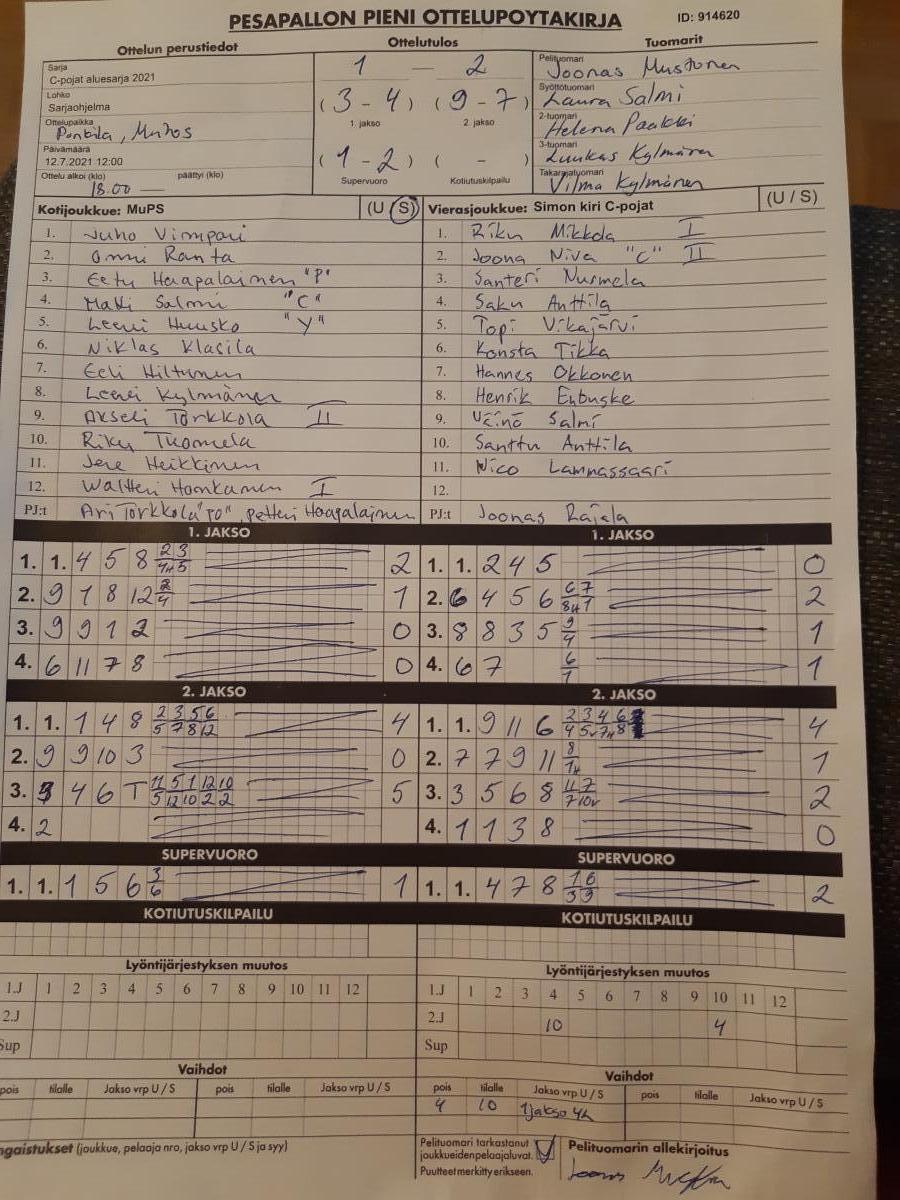 PESAPALLON PIENI OTTELUPOYTAKIRJA
ID: 914620
Ottelun perustiedot
Sarja
C-pojat aluesarja 2021
Lohko
Sarjaohjelma
Ottelupaikka
Ponkila, Muhos
Päivämäärä
12.7.2021 12:00
Ottelu alkoi (klo) päättyi (klo)
18.00 —
Ottelutulos
1 — 2
(3 - 4) (9 - 7)
1. jakso 2. jakso
(1 - 2) ( - )
Supervuoro Kotiutuskilpailu
Tuomarit
Pelituomari
Joonas Mustonen
Syöttötuomari
Laura Salmi
2-tuomari
Helena Paakki
3-tuomari
Luukas Kylmänen
Takarajatuomari
Vilma Kylmänen
Kotijoukkue: MuPS (U / S)
1. Juho Vimpari
2. Onni Ranta
3. Eetu Haapalainen "P"
4. Matti Salmi "C"
5. Leevi Huusko "Y"
6. Niklas Klasila
7. Eeli Hiltunen
8. Leevi Kylmänen
9. Akseli Törkkola II
10. Riku Tuomela
11. Jere Heikkinen
12. Waltteri Honkanen I
PJ:t Ari Törkkola "PO", Petteri Haapalainen
Vierasjoukkue: Simon kiri C-pojat (U / S)
1. Riku Mikkola I
2. Joona Niva "C" II
3. Santeri Nurmela
4. Saku Anttila
5. Topi Vikajärvi
6. Konsta Tikka
7. Hannes Okkonen
8. Henrik
9. Väinö Salmi
10. Santtu Anttila
11. Nico Lamnassaari
12.
PJ:t Joonas Rajala
1. JAKSO
1. 1. 4 5 8 2 3 2
4H 5
2. 9 1 8 12 2 1
4
3. 9 9 1 2 0
4. 6 11 7 8 0
2. JAKSO
1. 1. 1 4 8 2 3 5 6 4
5 7 8 12
2. 9 9 10 3 0
3. 4 6 T 11 5 1 12 10 5
5 12 10 2 2
4. 2
SUPERVUORO
1. 1. 1 5 6 3 1
6
KOTIUTUSKILPAILU
Lyöntijärjestyksen muutos
1.J 1 2 3 4 5 6 7 8 9 10 11 12
2.J
Sup
Vaihdot
pois tilalle Jakso vrp U / S pois tilalle Jakso vrp U / S
ngaistukset (joukkue, pelaaja nro, jakso vrp U / S ja syy)
1. JAKSO
1. 1. 2 4 5 0
2. 6 4 5 6 6 7 2
8H 1
3. 8 8 3 5 9 1
4
4. 6 7 6 1
1
2. JAKSO
1. 1. 9 11 6 2 3 4 6 4
4 5v 7H 8
2. 7 7 9 11 8 1
1H
3. 3 5 6 8 11 7 2
7 10v
4. 1 1 3 8 0
SUPERVUORO
1. 1. 4 7 8 1 6 2
3 9
KOTIUTUSKILPAILU
Lyöntijärjestyksen muutos
1.J 1 2 3 4 5 6 7 8 9 10 11 12
2.J 10 4
Sup
Vaihdot
pois tilalle Jakso vrp U / S pois tilalle Jakso vrp U / S
4 10 1jakso
Pelituomari tarkastanut
joukkueiden pelaajaluvat.
Puutteet merkitty erikseen.
Pelituomarin allekirjoitus